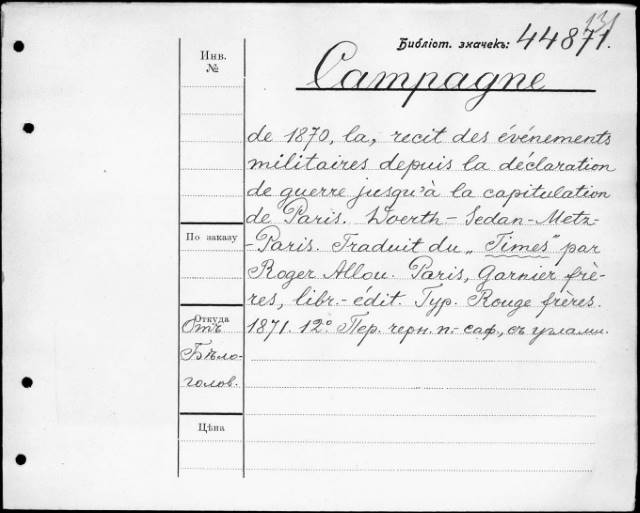 131
Библіот. значекъ: 44871.
Инв. №
Campagne
de 1870, la, recit des événements
militaires depuis la déclaration
de guerre jusqu'à la capitulation
de Paris. Woerth - Sedan - Metz -
По заказу
- Paris. Traduit du „Times" par
Roger Allou. Paris, Garnier frè-
res, libr.- édit. Typ. Rouge frères.
Откуда
Отъ
1871. 12° Пер. черн. п.- саф., съ углами.
Бѣло-
голов.
Цѣна